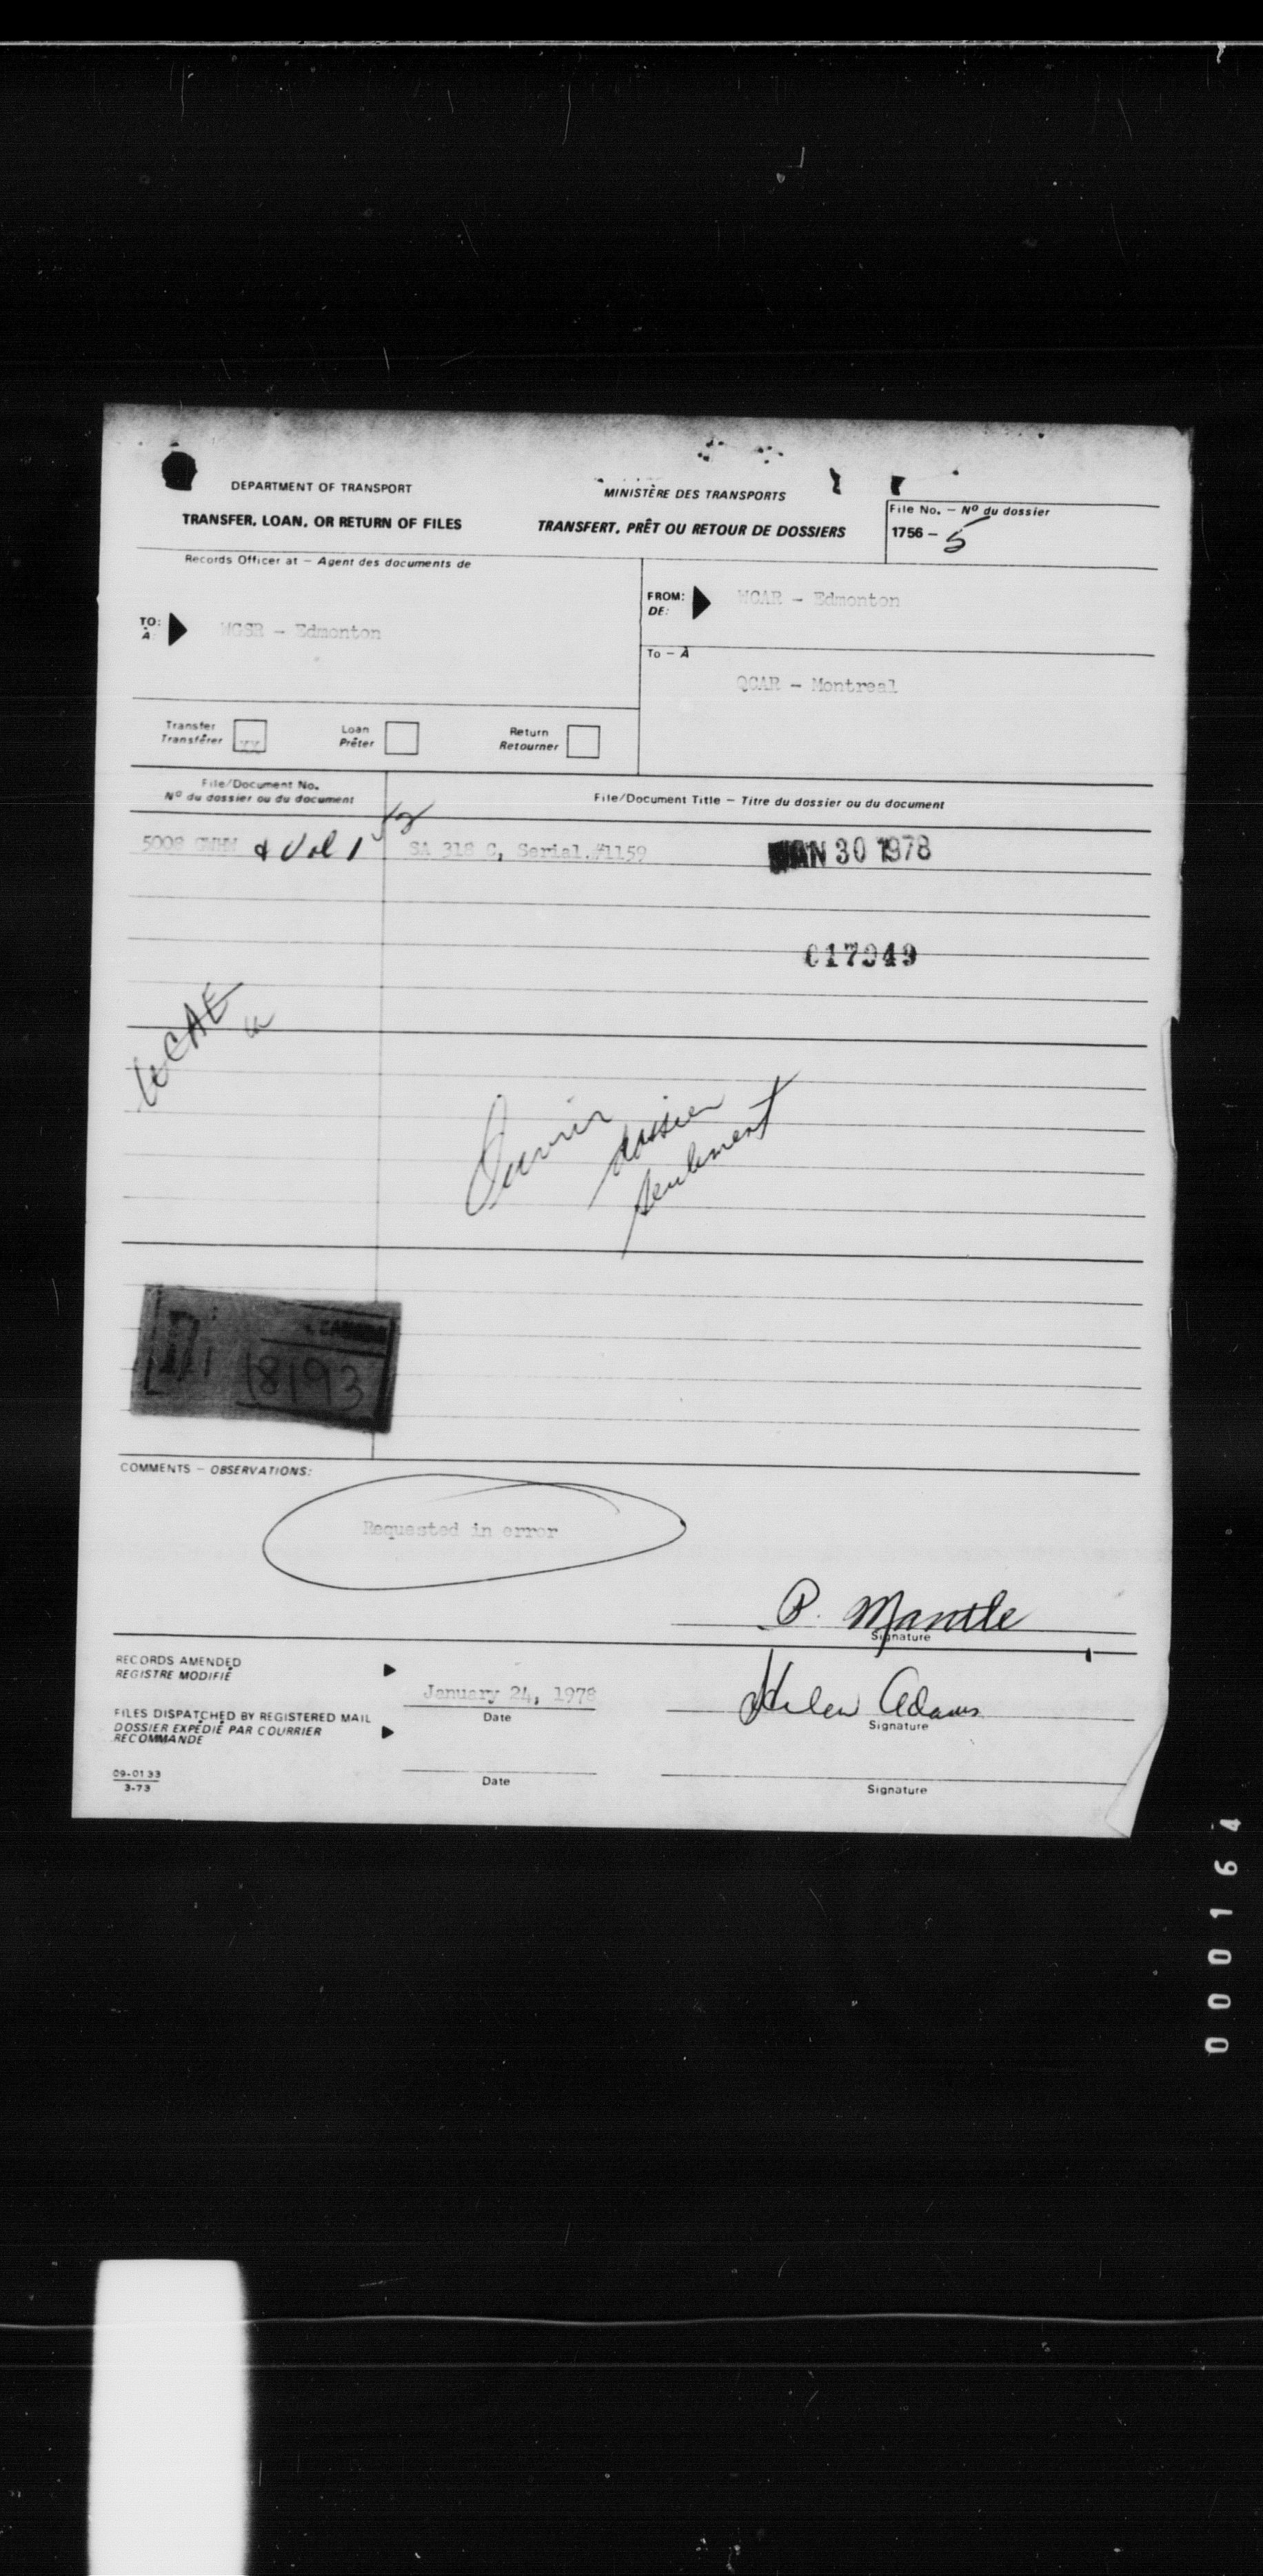 DEPARTMENT OF TRANSPORT
MINISTÈRE DES TRANSPORTS
TRANSFER, LOAN, OR RETURN OF FILES
TRANSFERT, PRÊT OU RETOUR DE DOSSIERS
File No. – Nº du dossier
1756 – 5
Records Officer at – Agent des documents de
TO:
À:
WGSR - Edmonton
FROM:
DE:
WCAR - Edmonton
To – À
QCAR - Montreal
Transfer
Transférer
XX
Loan
Prêter
Return
Retourner
File/Document No.
Nº du dossier ou du document
File/Document Title – Titre du dossier ou du document
5008 GWHM & Vol 1
SA 318 C, Serial #1159
JAN 30 1978
017949
Ouvrir
dossier
seulement
18193
COMMENTS – OBSERVATIONS:
Requested in error
P. Mantle
Signature
RECORDS AMENDED
REGISTRE MODIFIÉ
January 24, 1978
Date
Helen Adams
Signature
FILES DISPATCHED BY REGISTERED MAIL
DOSSIER EXPÉDIÉ PAR COURRIER
RECOMMANDE
Date
Signature
09-0133
3-73
000164